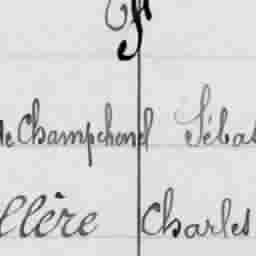 de Champhenel Sébas
llère Charles